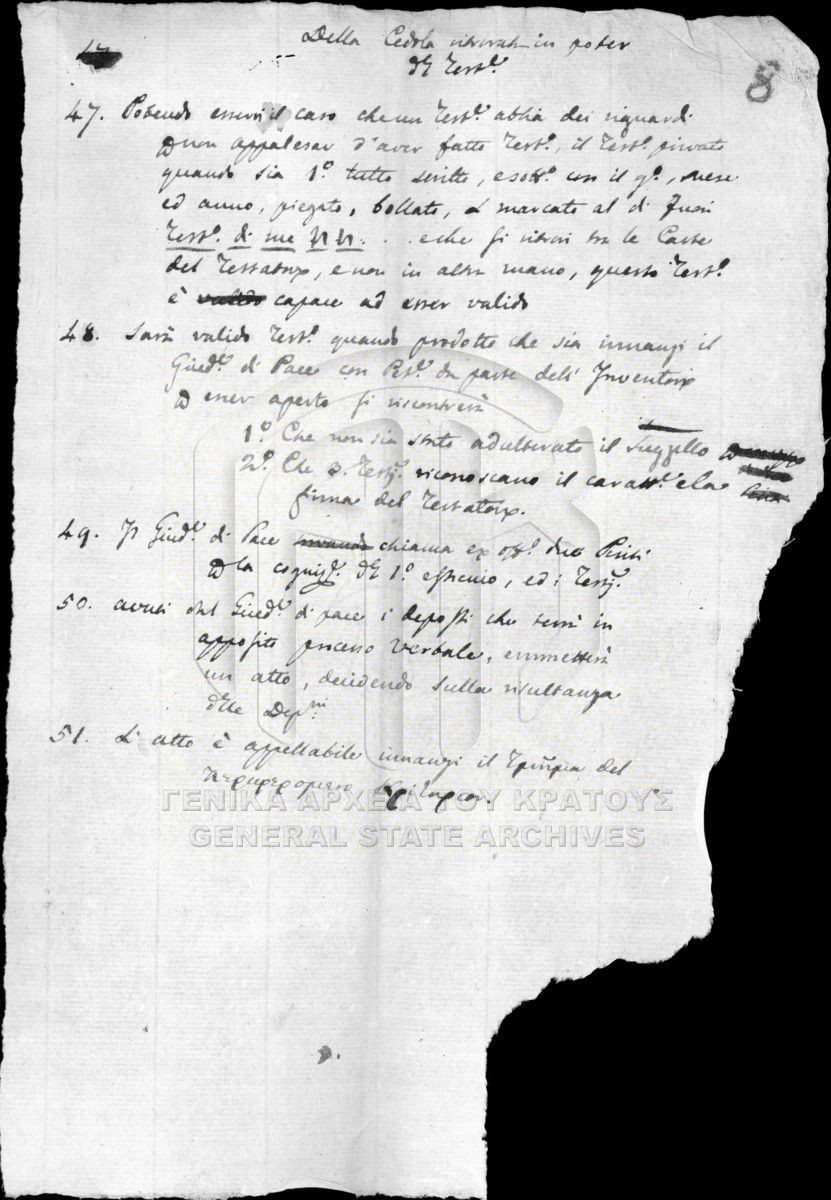 Della Cedola ritrovata in poter
del Test.e
8
47. Potendo esservi il caso che un Test.e abbia dei riguardi
a non appalesar d'aver fatto Test.o, il Test.o privato
quando sia 1.o tutto scritto, e sott.o con il g.o, mese
ed anno, piegato, bollato, e marcato al di fuori
Test.o di me NN. . . e che si ritrovi tra le Carte
del Testatore, e non in altra mano, questo Test.o
è valido capace ad esser valido
48. Sarà valido Test.o quando prodotto che sia innanzi il
Giud.e di Pace con Pet.e da parte dell' Inventore
ad esser aperto si riscontrerà
1.o Che non sia stato adulterato il Suggello
2.o Che 3. Testj. riconoscano il caratt.e e la
firma del Testatore.
49. Il Giud.e di Pace chiama ex off.o due Periti
la cogniz.e del 1.o estremo, ed i Testj.
50. avuti dal Giud.e di pace i depositi che terrà in
apposito processo Verbale, emmetterà
un atto, decidendo sulla risultanza
delle Dep.ni
51. L'atto è appellabile innanzi il Τμῆμα del
περιφερόμενο Κριτήριον.
ΓΕΝΙΚΑ ΑΡΧΕΙΑ ΤΟΥ ΚΡΑΤΟΥΣ
GENERAL STATE ARCHIVES